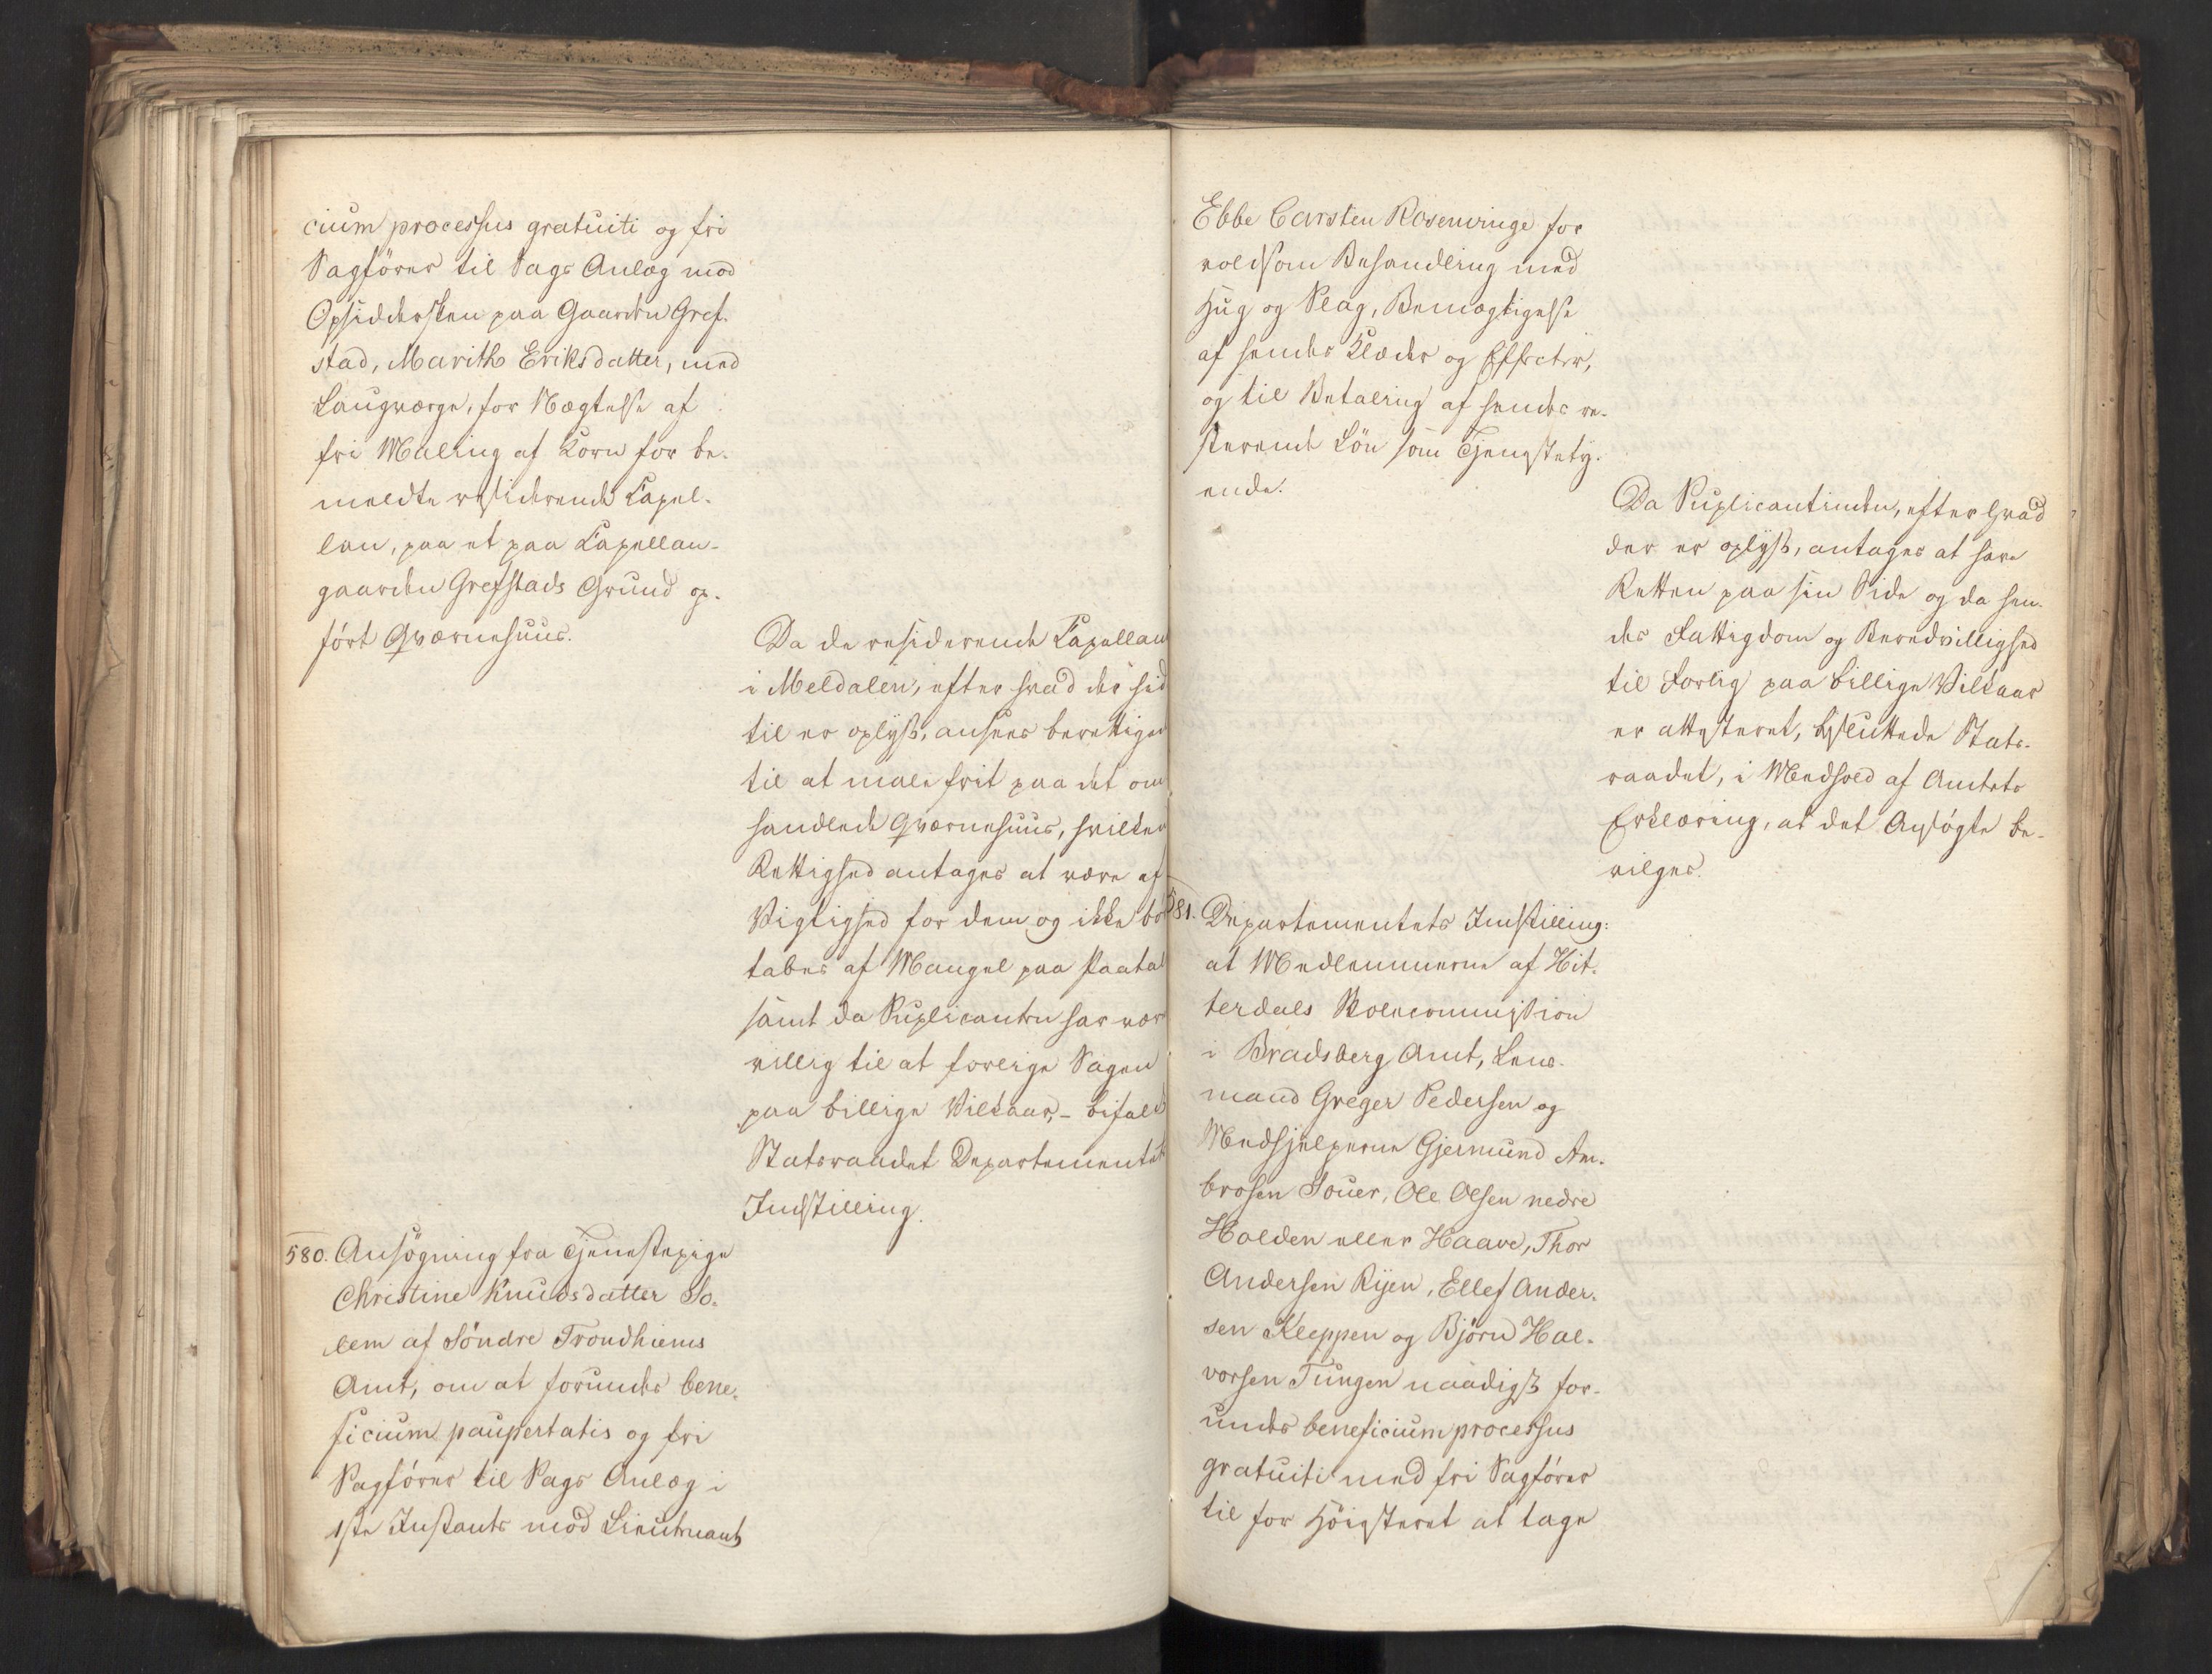 cium processus gratuiti og fri
Sagförer til Sags Anlæg mod
Opsiddersken paa Gaarden Gref-
stad, Marith Eriksdatter, med
Laugværge, for Nægtelse af
fri Maling af Korn for be-
meldte residerende Capel-
lan, paa et paa Capellan-
gaarden Grefstads Grund op-
fört Qværnehuus.
Da de residerende Capellan
i Meldalen, efter hvad der hid
til er oplyst, ansees berettiged
til at male frit paa det om
handlede Qværnehuus, hvilken
Rettighed antages at være af
Vigtighed for dem og ikke bö
tabes af Mangel paa Paatal
samt da Suplicanten har vær
villig til at forlige Sagen
paa billige Vilkaar, - bifald
Statsraadet Departementet
Indstilling.
580. Ansögning fra Tjenestepige
Christine Knudsdatter So-
lem af Söndre Trondhiems
Amt, om at forundes bene-
ficium paupertatis og fri
Sagförer til Sags Anlæg i
1ste Instants mod Lieutnant
Ebbe Carsten Rosenvinge for
voldsom Behandling med
Hug og Slag, Bemægtigelse
af hendes Klæder og Effecter,
og til Betaling af hendes re-
sterende Lön som Tjenestety-
ende.
Da Suplicantinden, efter hvad
der er oplyst, antages at have
Retten paa sin Side og da hen-
des Fattigdom og Beredvillighed
til Forlig paa billige Vilkaar
er attesteret, besluttede Stats-
raadet, i Medhold af Amtets
Erklæring, at det Ansögte be-
vilges.
581. Departementets Indstilling:
at Medlemmerne af Hit-
terdals Skolecommission
i Bradsberg Amt, Lens-
mand Greger Pedersen og
Medhjelperne Gjermund Am-
brosen Souer, Ole Olsen nedre
Holden eller Haave, Thor
Andersen Ryen, Ellef Ander-
sen Kleppen og Björn Hal-
vorsen Tungen naadigst for-
undes beneficium processus
gratuiti med fri Sagförer
til for Höiesteret at tage